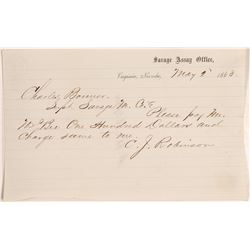 Savage Assay Office,
Virginia, Nevada, May 2d 1863
Charles Bonner
Supt. Savage M. Co
Please pay Mr.
McBee One Hundred Dollars and
Charge same to me.
C. J. Robinson